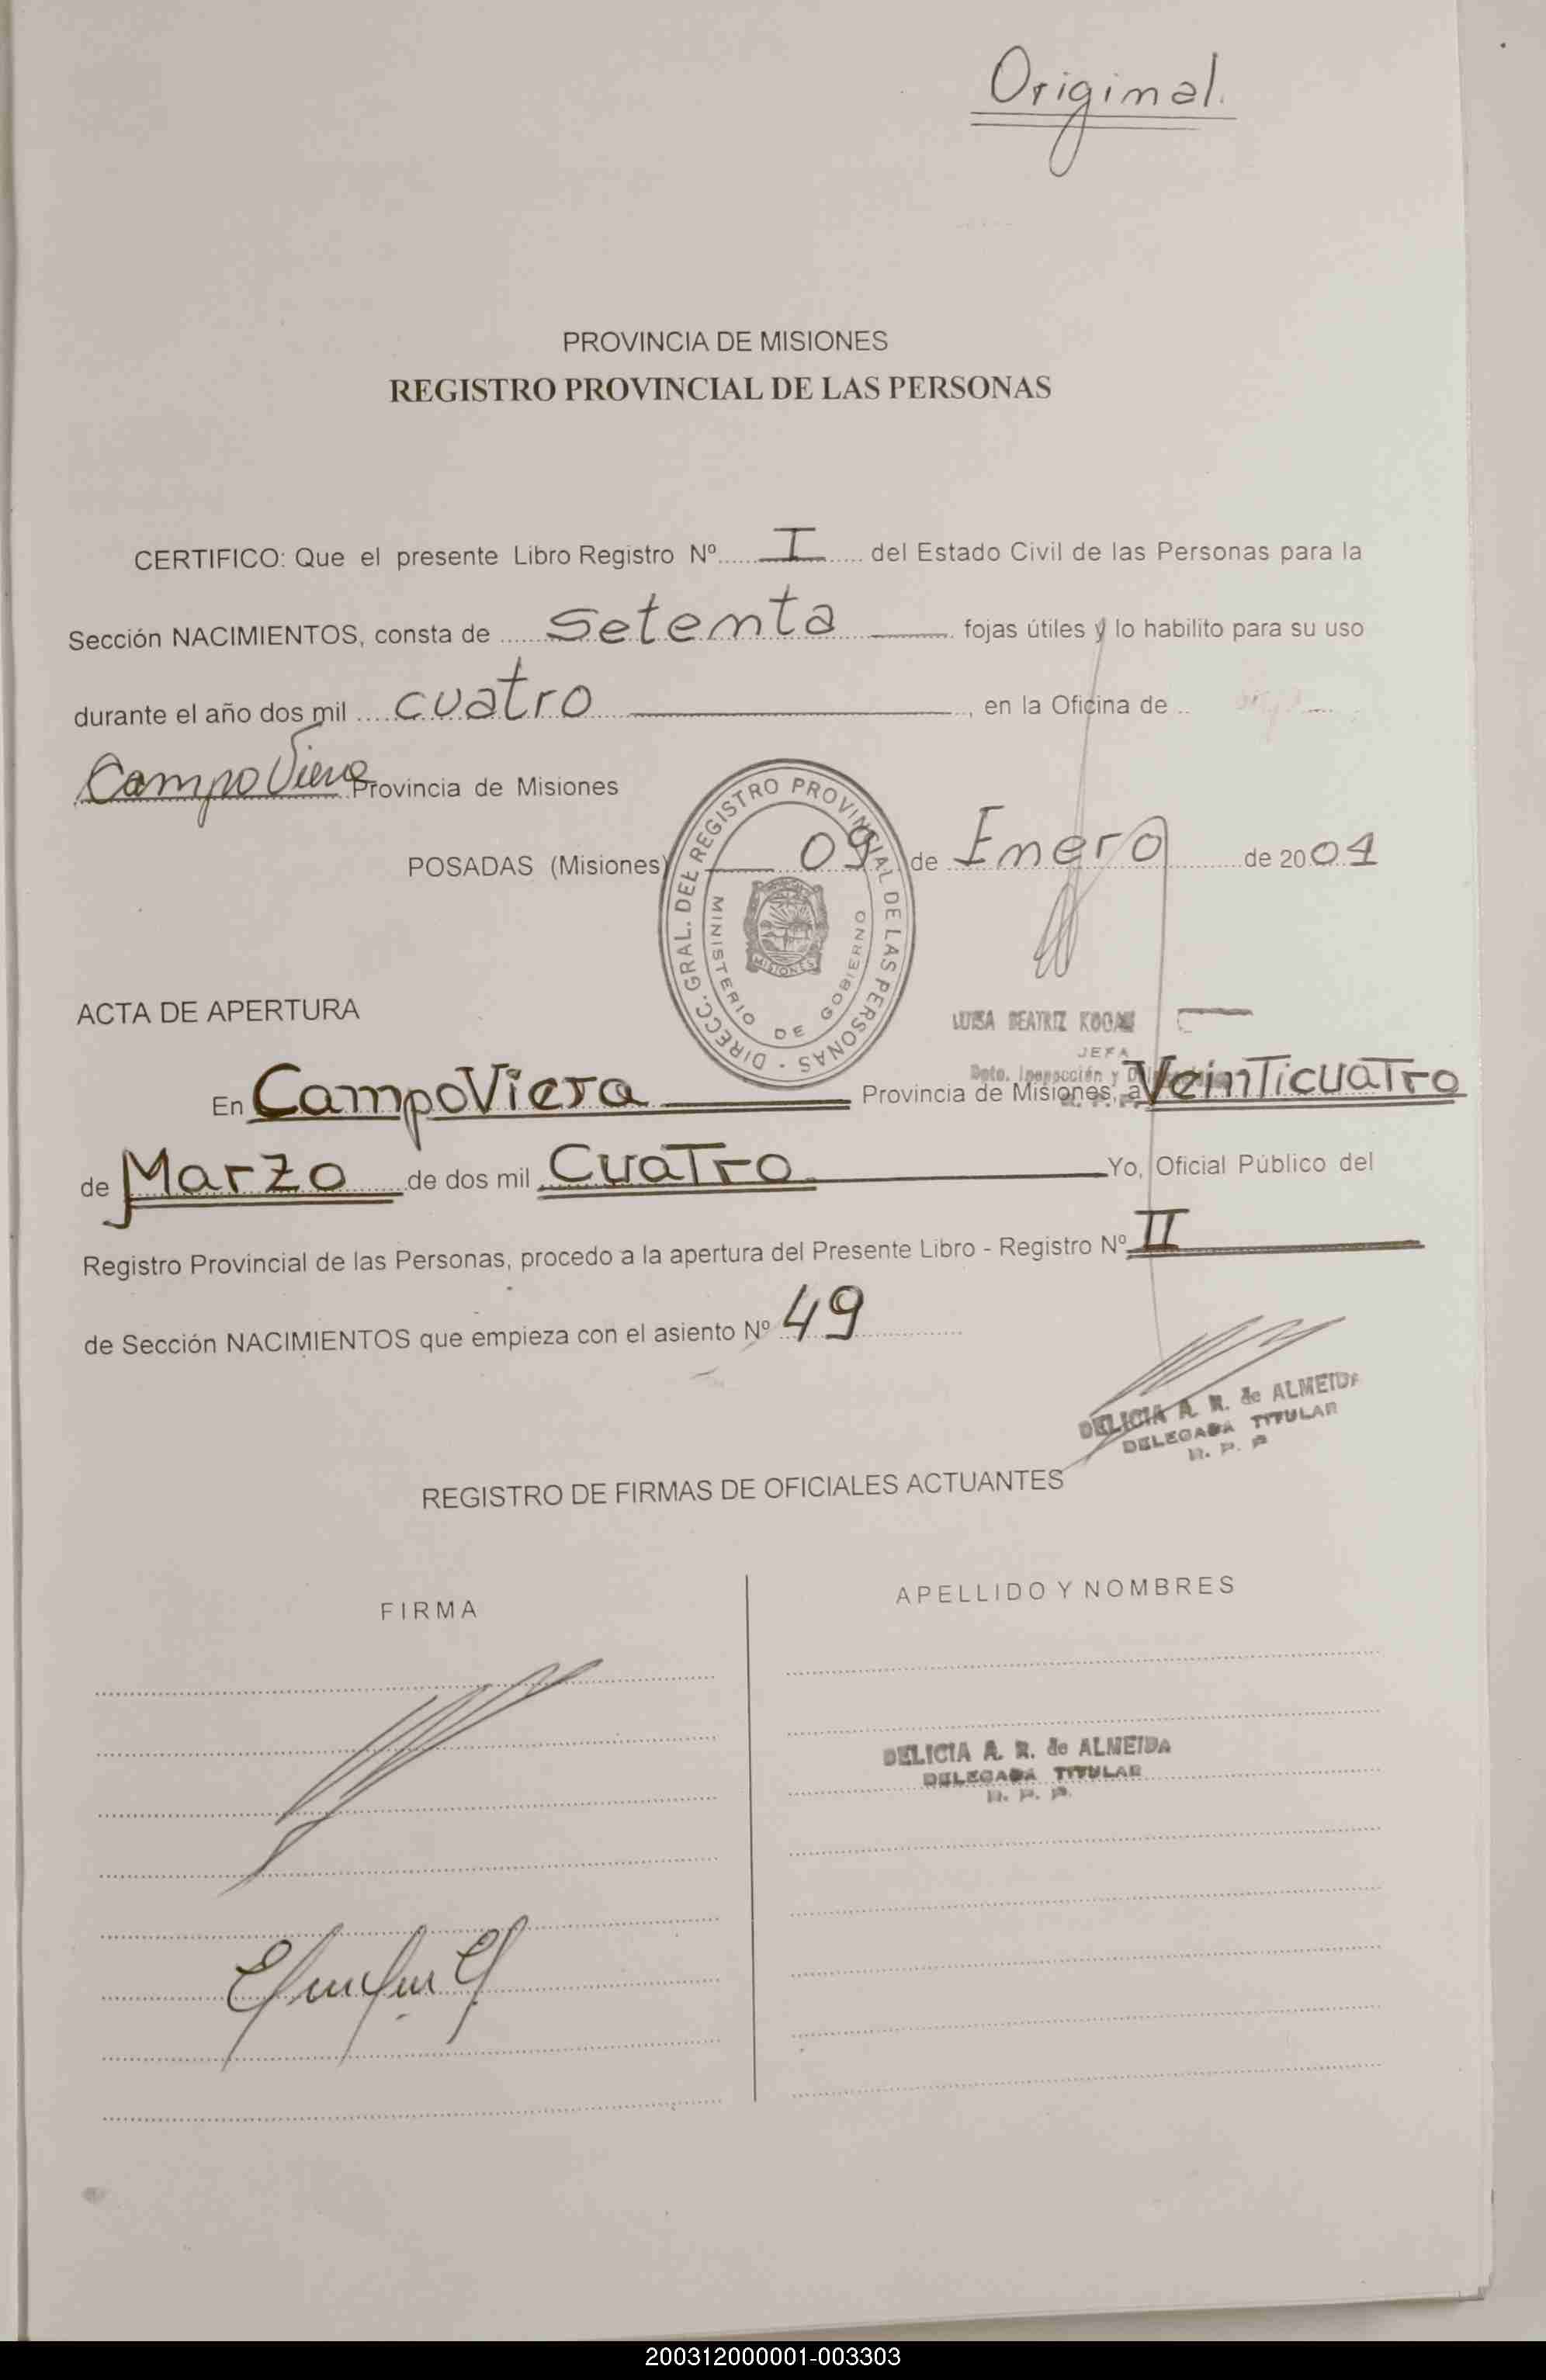 Original.
PROVINCIA DE MISIONES
REGISTRO PROVINCIAL DE LAS PERSONAS
CERTIFICO: Que el presente Libro Registro Nº I del Estado Civil de las Personas para la
Sección NACIMIENTOS, consta de setenta fojas útiles y lo habilito para su uso
durante el año dos mil cuatro, en la Oficina de
Campo Viera Provincia de Misiones
POSADAS (Misiones) 09 de Enero de 2004
DIRECC. GRAL. DEL REGISTRO PROVINCIAL DE LAS PERSONAS -
MINISTERIO DE GOBIERNO
MISIONES
LUISA BEATRIZ KOGAN
JEFA
Dpto. Inspección y
ACTA DE APERTURA
En Campo Viera Provincia de Misiones, a Veinticuatro
de Marzo de dos mil Cuatro Yo, Oficial Público del
Registro Provincial de las Personas, procedo a la apertura del Presente Libro - Registro Nº II
de Sección NACIMIENTOS que empieza con el asiento Nº 49
DELICIA A. R. de ALMEIDA
DELEGADA TITULAR
R. P. P.
REGISTRO DE FIRMAS DE OFICIALES ACTUANTES
FIRMA
APELLIDO Y NOMBRES
DELICIA A. R. de ALMEIDA
DELEGADA TITULAR
R. P. P.
200312000001-003303